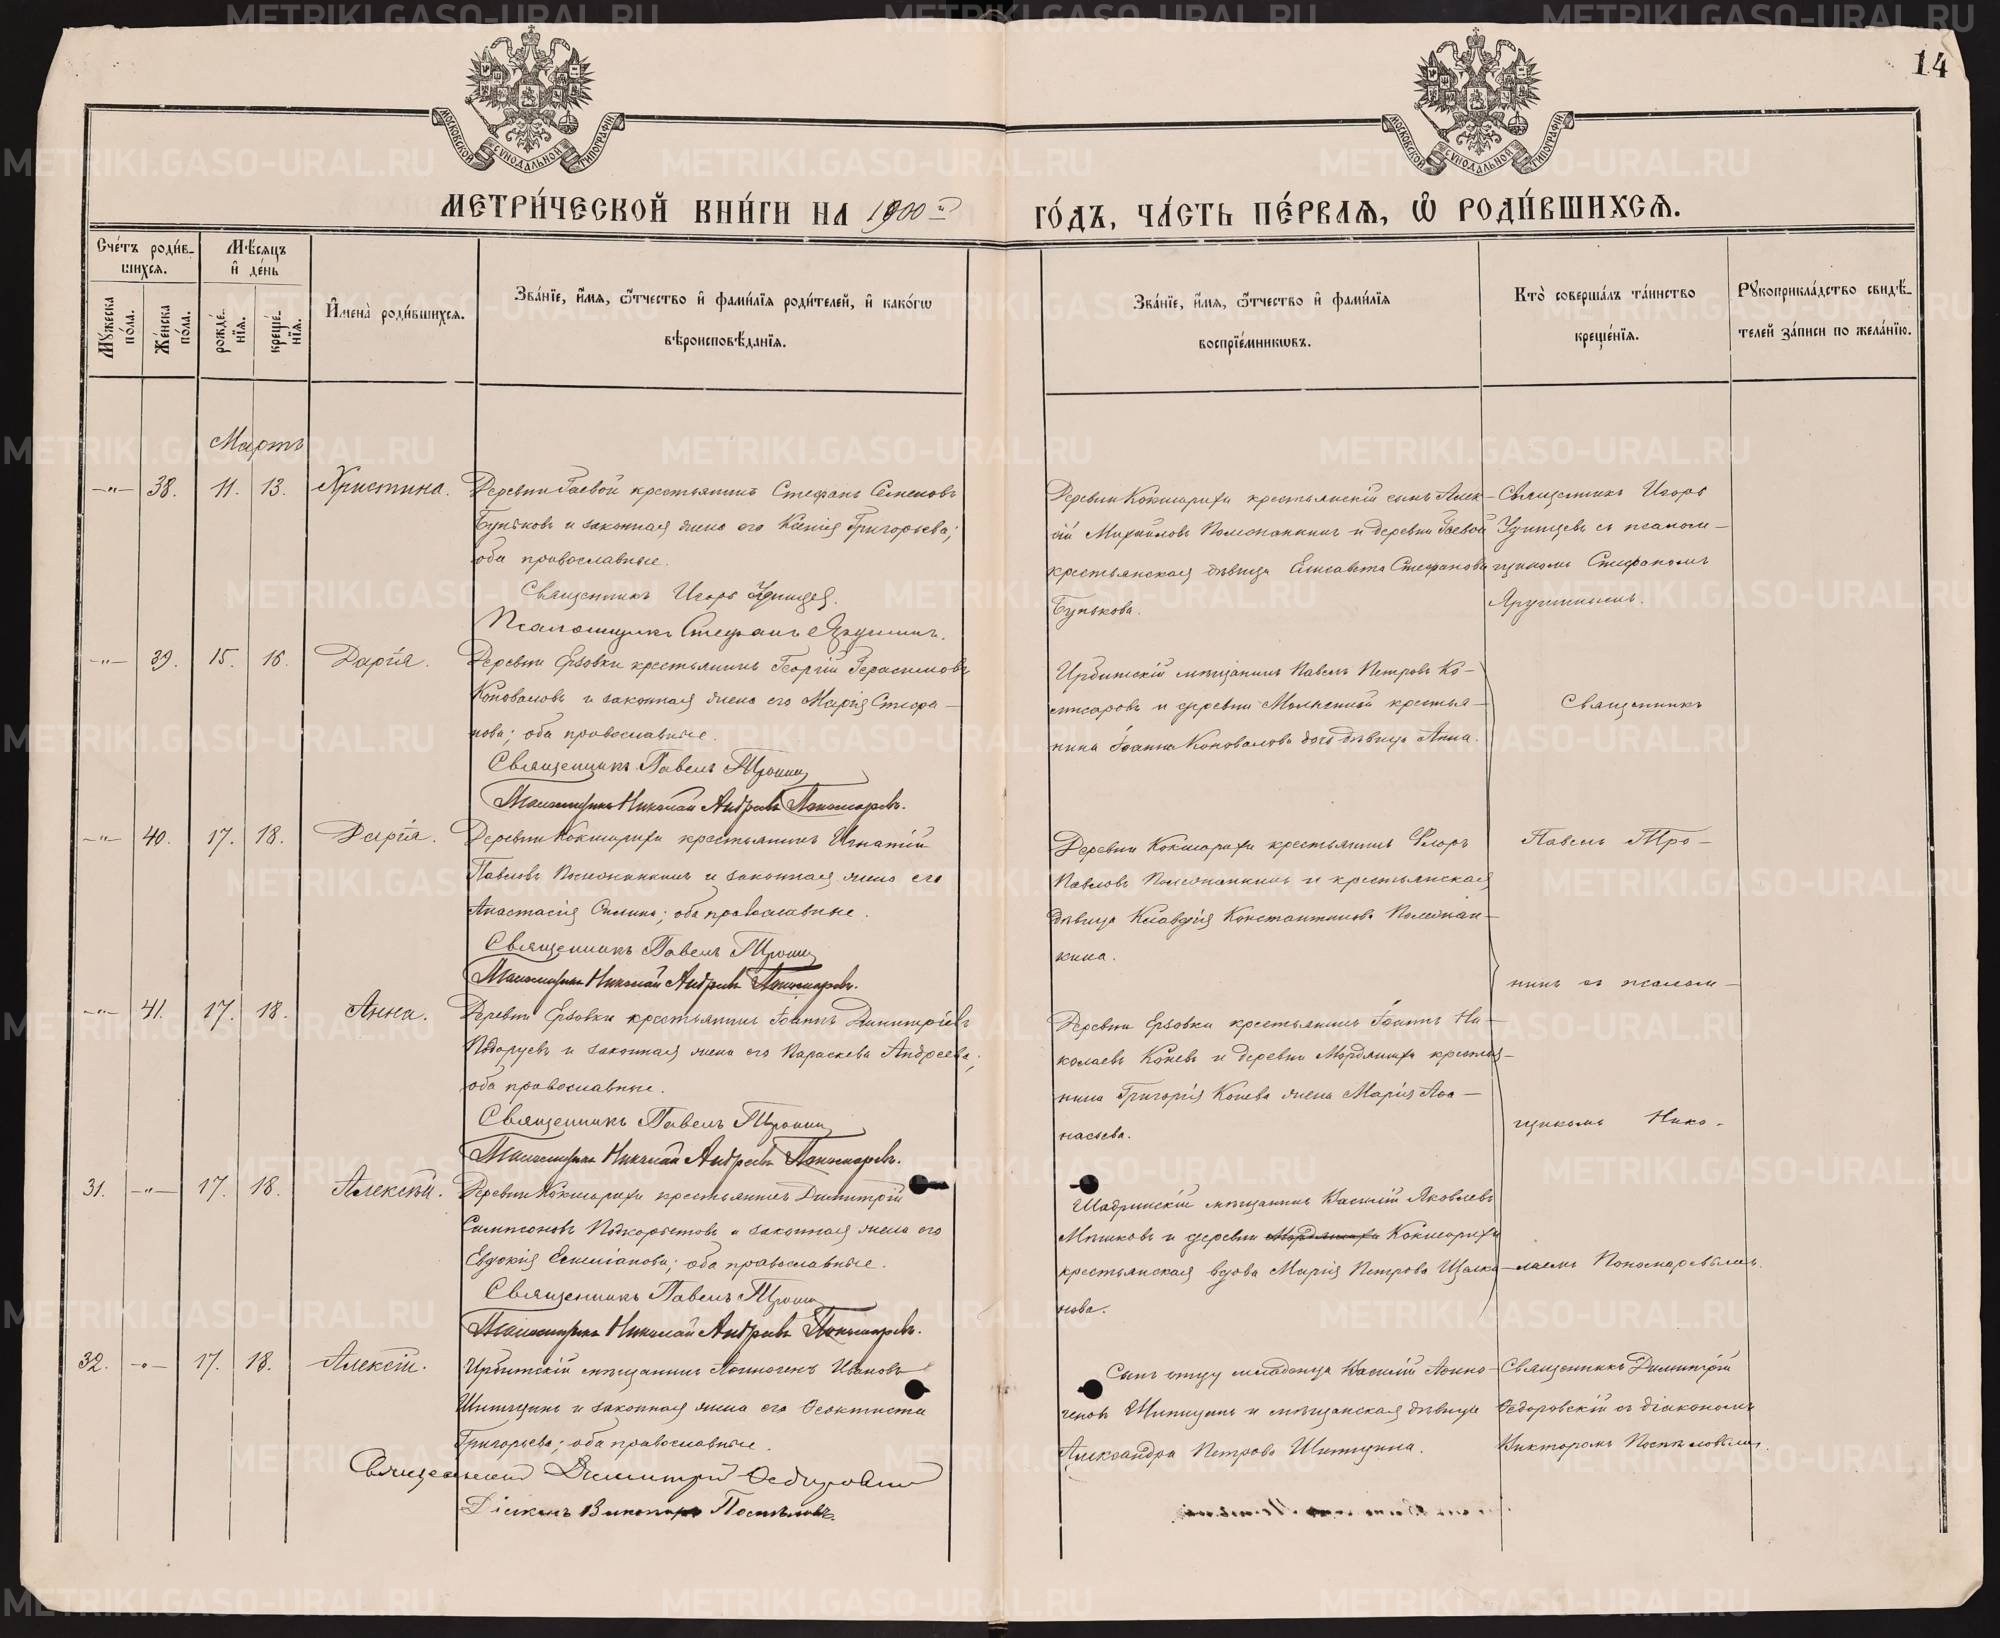 14
МОСКОВСКОЙ СѴНОДАЛЬНОЙ ТИПОГРАФІИ
МОСКОВСКОЙ СѴНОДАЛЬНОЙ ТИПОГРАФІИ
МЕТРИ́ЧЕСКОЙ КНИ́ГИ НА 1900й ГО́ДЪ, ЧА́СТЬ ПЕ́РВАЯ, Ѽ РОДИ́ВШИХСЯ.
Сче́тъ роди́в-
шихся.
Мѣ́сяцъ
и҆ де́нь
Мꙋ́жеска
по́ла.
Же́нска
по́ла.
рожде́-
нїя.
креще́-
нїя.
И҆мена̀ роди́вшихся.
Зва́нїе, и҆́мя, ѻ҆́тчество и҆ фами́лїя роди́телей, и҆ како́гѡ
вѣроисповѣ́данїя.
Зва́нїе, и҆́мя, ѻ҆́тчество и҆ фами́лїя
воспрїе́мникѡвъ.
Кто̀ соверша́лъ та́инство
креще́нїя.
Рꙋкоприкла́дство свидѣ́-
телей за́писи по жела́нїю.
Мартъ
-"- 38. 11. 13. Христина.
Деревни Гаевой крестьянинъ Стефанъ Семеновъ
Буньковъ и законная жена его Ксенія Григорьева;
оба православные.
Священникъ Игорь Удинцев.
Псаломщикъ Стефанъ
Деревни Кокшарихи крестьянскій сынъ Алек-
сій Михайловъ и деревни Гаевой
крестьянская дѣвица Елисавета Стефанова
Бунькова.
Священникъ Игорь
Удинцевъ съ псалом-
щикомъ Стефаномъ
-"- 39. 15. 16. Дарія.
Деревни Ерзовки крестьянинъ Георгій Герасимовъ
Коноваловъ и законная жена его Марія Стефа-
нова; оба православные.
Священникъ Павелъ Тронин
Псаломщикъ Николай Андреевъ Пономаревъ.
Ирбитскій мѣщанинъ Павелъ Петровъ Ко-
и деревни крестья-
нина Іоанна Коновалова дочь дѣвица Анна.
Священникъ
-"- 40. 17. 18. Дарія.
Деревни Кокшарихи крестьянинъ Игнатій
Павловъ и законная жена его
Анастасія Силина; оба православные.
Священникъ Павелъ Тронин
Псаломщикъ Николай Андреевъ Пономаревъ.
Деревни Кокшарихи крестьянинъ Флоръ
Павловъ и крестьянская
дѣвица Клавдія Константинова
кина.
Павелъ Тро-
нинъ съ псалом-
-"- 41. 17. 18. Анна.
Деревни Ерзовки крестьянинъ Іоаннъ Димитріевъ
и законная жена его Параскева Андреева;
оба православные.
Священникъ Павелъ Тронин
Псаломщикъ Николай Андреевъ Пономаревъ.
Деревни Ерзовки крестьянинъ Іоаннъ Ни-
колаевъ Коневъ и деревни Мордяшихи крестья-
нина Григорія Конева жена Марія Аѳа-
насьева.
щикомъ Нико-
31. -"- 17. 18. Алексѣй.
Деревни Кокшарихи крестьянинъ Димитрій
Самсоновъ Подкорытовъ и законная жена его
Евдокія Емиліанова; оба православные.
Священникъ Павелъ Тронин
Псаломщикъ Николай Андреевъ Пономаревъ.
Шадринскій мѣщанинъ Василій Яковлевъ
Мѣшковъ и деревни Мордяшихи Кокшарихи
крестьянская вдова Марія Петрова
нова.
-лаемъ Пономаревымъ.
32. -"- 17. 18. Алексій.
Ирбитскій мѣщанинъ Аѳиногенъ Ивановъ
Шипицинъ и законная жена его Ѳеоктиста
Григорьева; оба православные.
Священникъ Димитрій Ѳедоровский
Діаконъ Викторъ Поспѣловъ.
Сынъ отцу младенца Василій Аѳино-
геновъ Шипицинъ и мѣщанская дѣвица
Александра Петрова Шипицина.
Священникъ Димитрій
Ѳедоровскій съ діакономъ
Викторомъ Поспѣловымъ.
METRIKI.GASO-URAL.RU